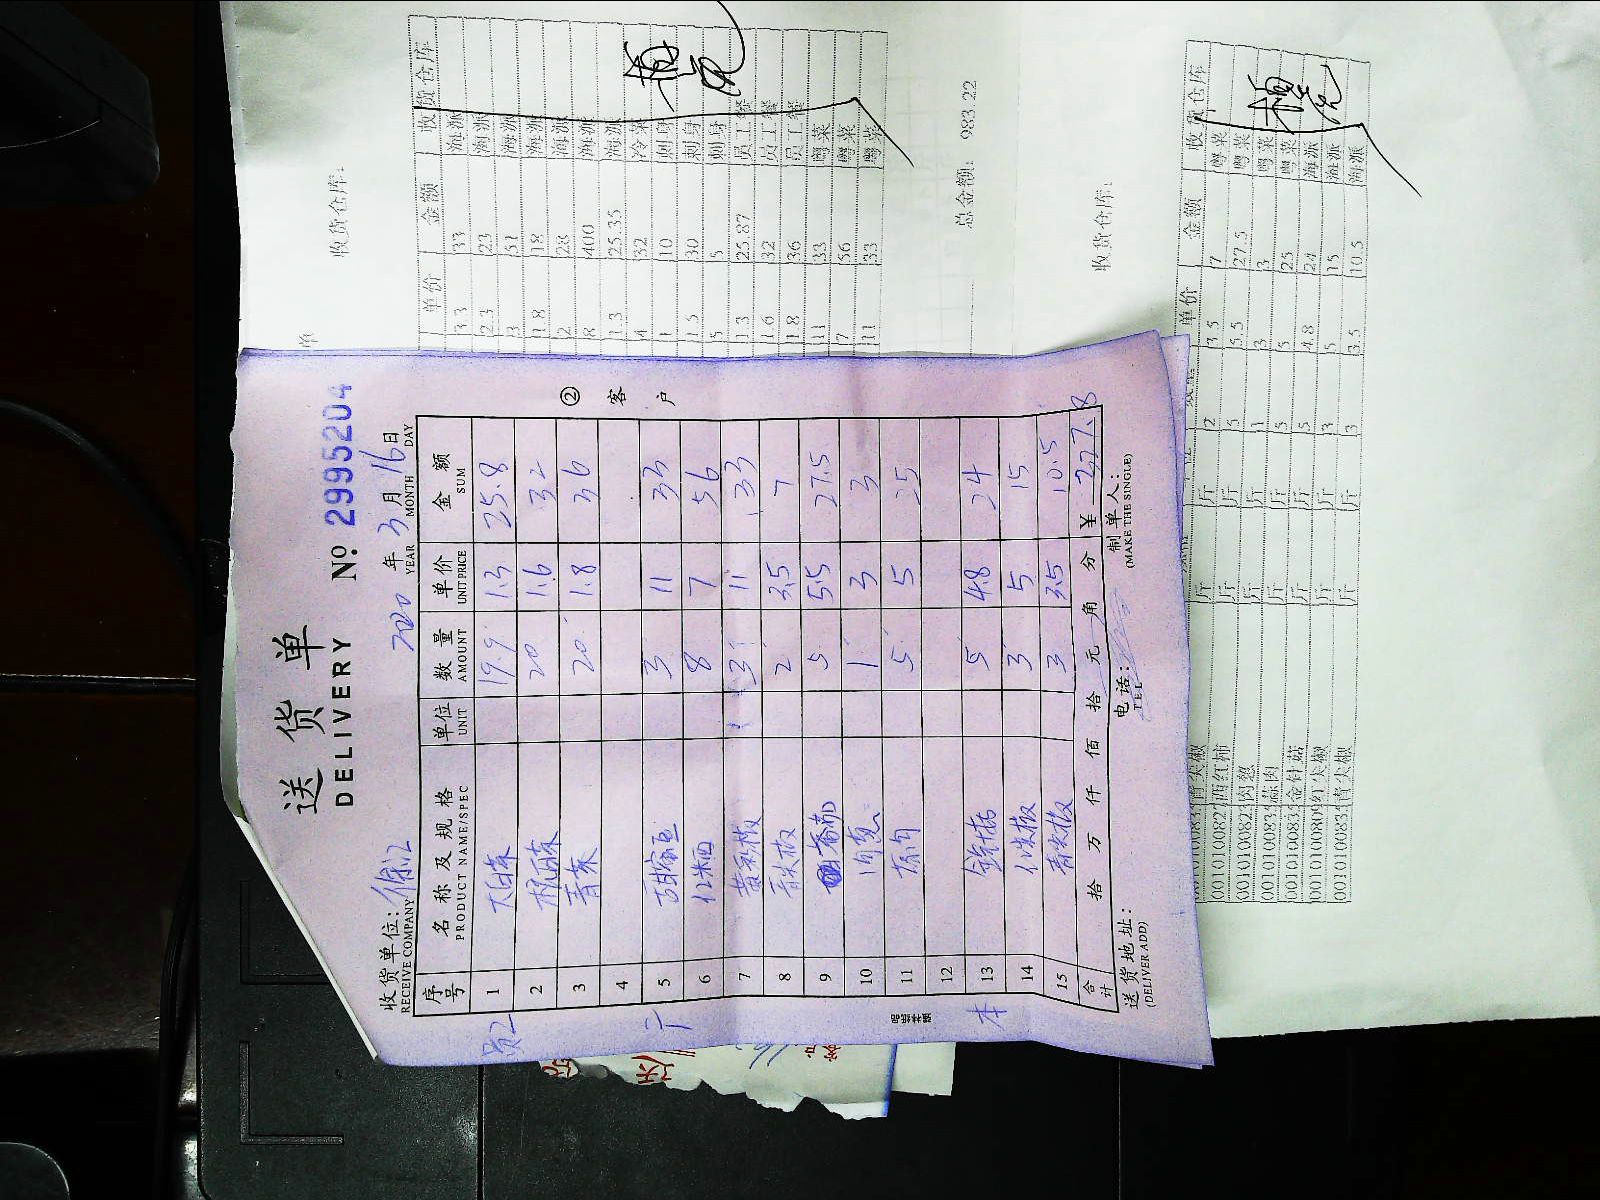 送货单
DELIVERY
№ 2995204
收货单位:
RECEIVE COMPANY
2020 年 3 月 16 日
YEAR MONTH DAY
序号 名称及规格 单位 数量 单价 金额
PRODUCT NAME/SPEC UNIT AMOUNT UNIT PRICE SUM
1 大白菜 19.9 1.3 25.8
2 20 1.6 32
3 青菜 20 1.8 36
4
5 3 11 33
6 8 7 56
7 3 11 33
8 青尖椒 2 3.5 7
9 5 5.5 27.5
10 肉葱 1 3 3
11 蒜肉 5 5 25
12
13 金针菇 5 4.8 24
14 红尖椒 3 5 15
15 青尖椒 3 3.5 10.5
合计 拾 万 仟 佰 拾 元 角 分 ¥ 327.8
送货地址:
(DELIVER ADD)
电话:
TEL
制单人:
(MAKE THE SINGLE)
② 客户
收货仓库:
单价 金额 收货仓库
3.3 33 海派
2.3 23 海派
3 51 海派
1.8 18 海派
2 28 海派
8 400 海派
1.3 25.35 海派
4 32 冷菜
1 10 刺身
1.5 30 刺身
5 5 刺身
1.3 25.87 员工餐
1.6 32 员工餐
1.8 36 员工餐
11 33 粤菜
7 56 粤菜
11 33 粤菜
总金额: 983.22
收货仓库:
单价 金额 收货仓库
青尖椒 斤 斤 2 3.5 7 粤菜
西红柿 斤 斤 5 5.5 27.5 粤菜
肉葱 斤 斤 1 3 3 粤菜
蒜肉 斤 斤 5 5 25 粤菜
金针菇 斤 斤 5 4.8 24 海派
红尖椒 斤 斤 3 5 15 海派
青尖椒 斤 斤 3 3.5 10.5 海派